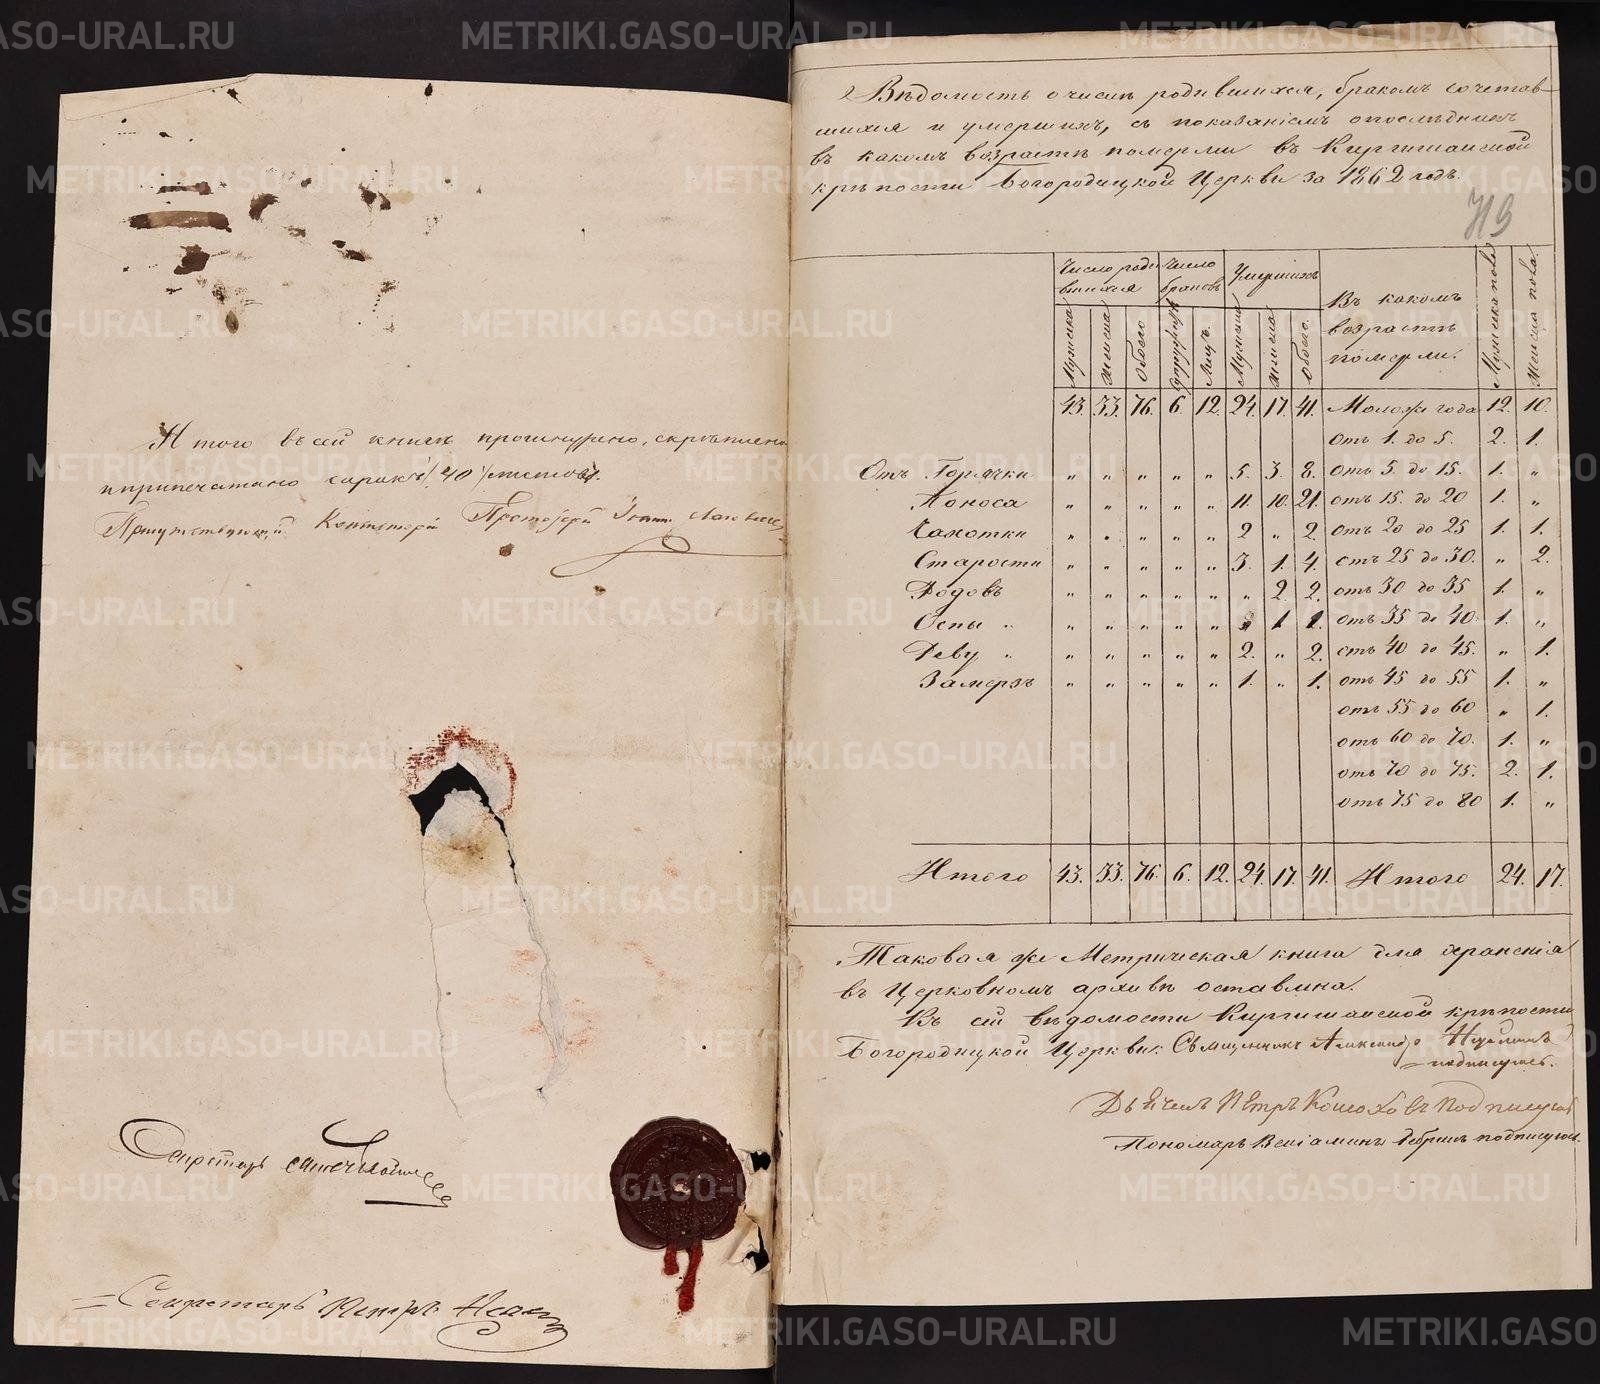 Итого въ сей книгѣ прошнуровано, скрѣплено
и припечатано сорокъ /40/ листовъ.
Присутствующій Консисторіи Протоіерей Іоаннъ
Секретарь
Секретарь Петръ
Вѣдомость о числѣ родившихся, бракомъ сочетав-
шихся и умершихъ, съ показаніемъ о послѣднихъ
въ какомъ возрастѣ померли въ Киргишанской
крѣпости Богородицкой Церкви за 1862 годъ.
Число роди Число Умершихъ Въ какомъ Мужска пола Женска пола
вшихся браковъ возрастѣ
Мужска Женска Обоего Супружествъ Лицъ Мужска Женска Обоего. померли.
43. 33. 76. 6. 12. 24. 17. 41. Моложе года 12. 10.
отъ 1. до 5. 2. 1.
Отъ Горячки „ „ „ „ „ 5. 3. 8. отъ 5. до 15. 1. „
Поноса „ „ „ „ „ 11. 10. 21. отъ 15. до 20 1. „
Чахотки „ „ „ „ „ 2 „ 2. отъ 20 до 25 1. 1.
Старости „ „ „ „ „ 3. 1. 4. отъ 25 до 30. „ 2.
Родовъ „ „ „ „ „ „ 2. 2. отъ 30 до 35 1. „
Оспы „ „ „ „ „ „ „ 1 1. отъ 35 до 40. 1. „
Реву „ „ „ „ „ „ 2. „ 2. отъ 40 до 45. „ 1.
Замерзъ „ „ „ „ „ 1. „ 1. отъ 45 до 55 1. „
отъ 55 до 60 „ 1.
отъ 60 до 70. 1. „
отъ 70 до 75. 2. 1.
отъ 75 до 80 1. „
Итого 43. 33. 76. 6. 12. 24. 17. 41. Итого 24. 17.
Таковая же Метрическая книга для храненія
въ Церковномъ архивѣ оставлена.
Къ сей вѣдомости Киргишанской крѣпости
Богородицкой Церкви: Священникъ Александръ
подписуюсь.
Дьячекъ Петръ Кошоховъ подписуюсь
Пономарь Веніаминъ подписуюсь.
METRIKI.GASO-URAL.RU